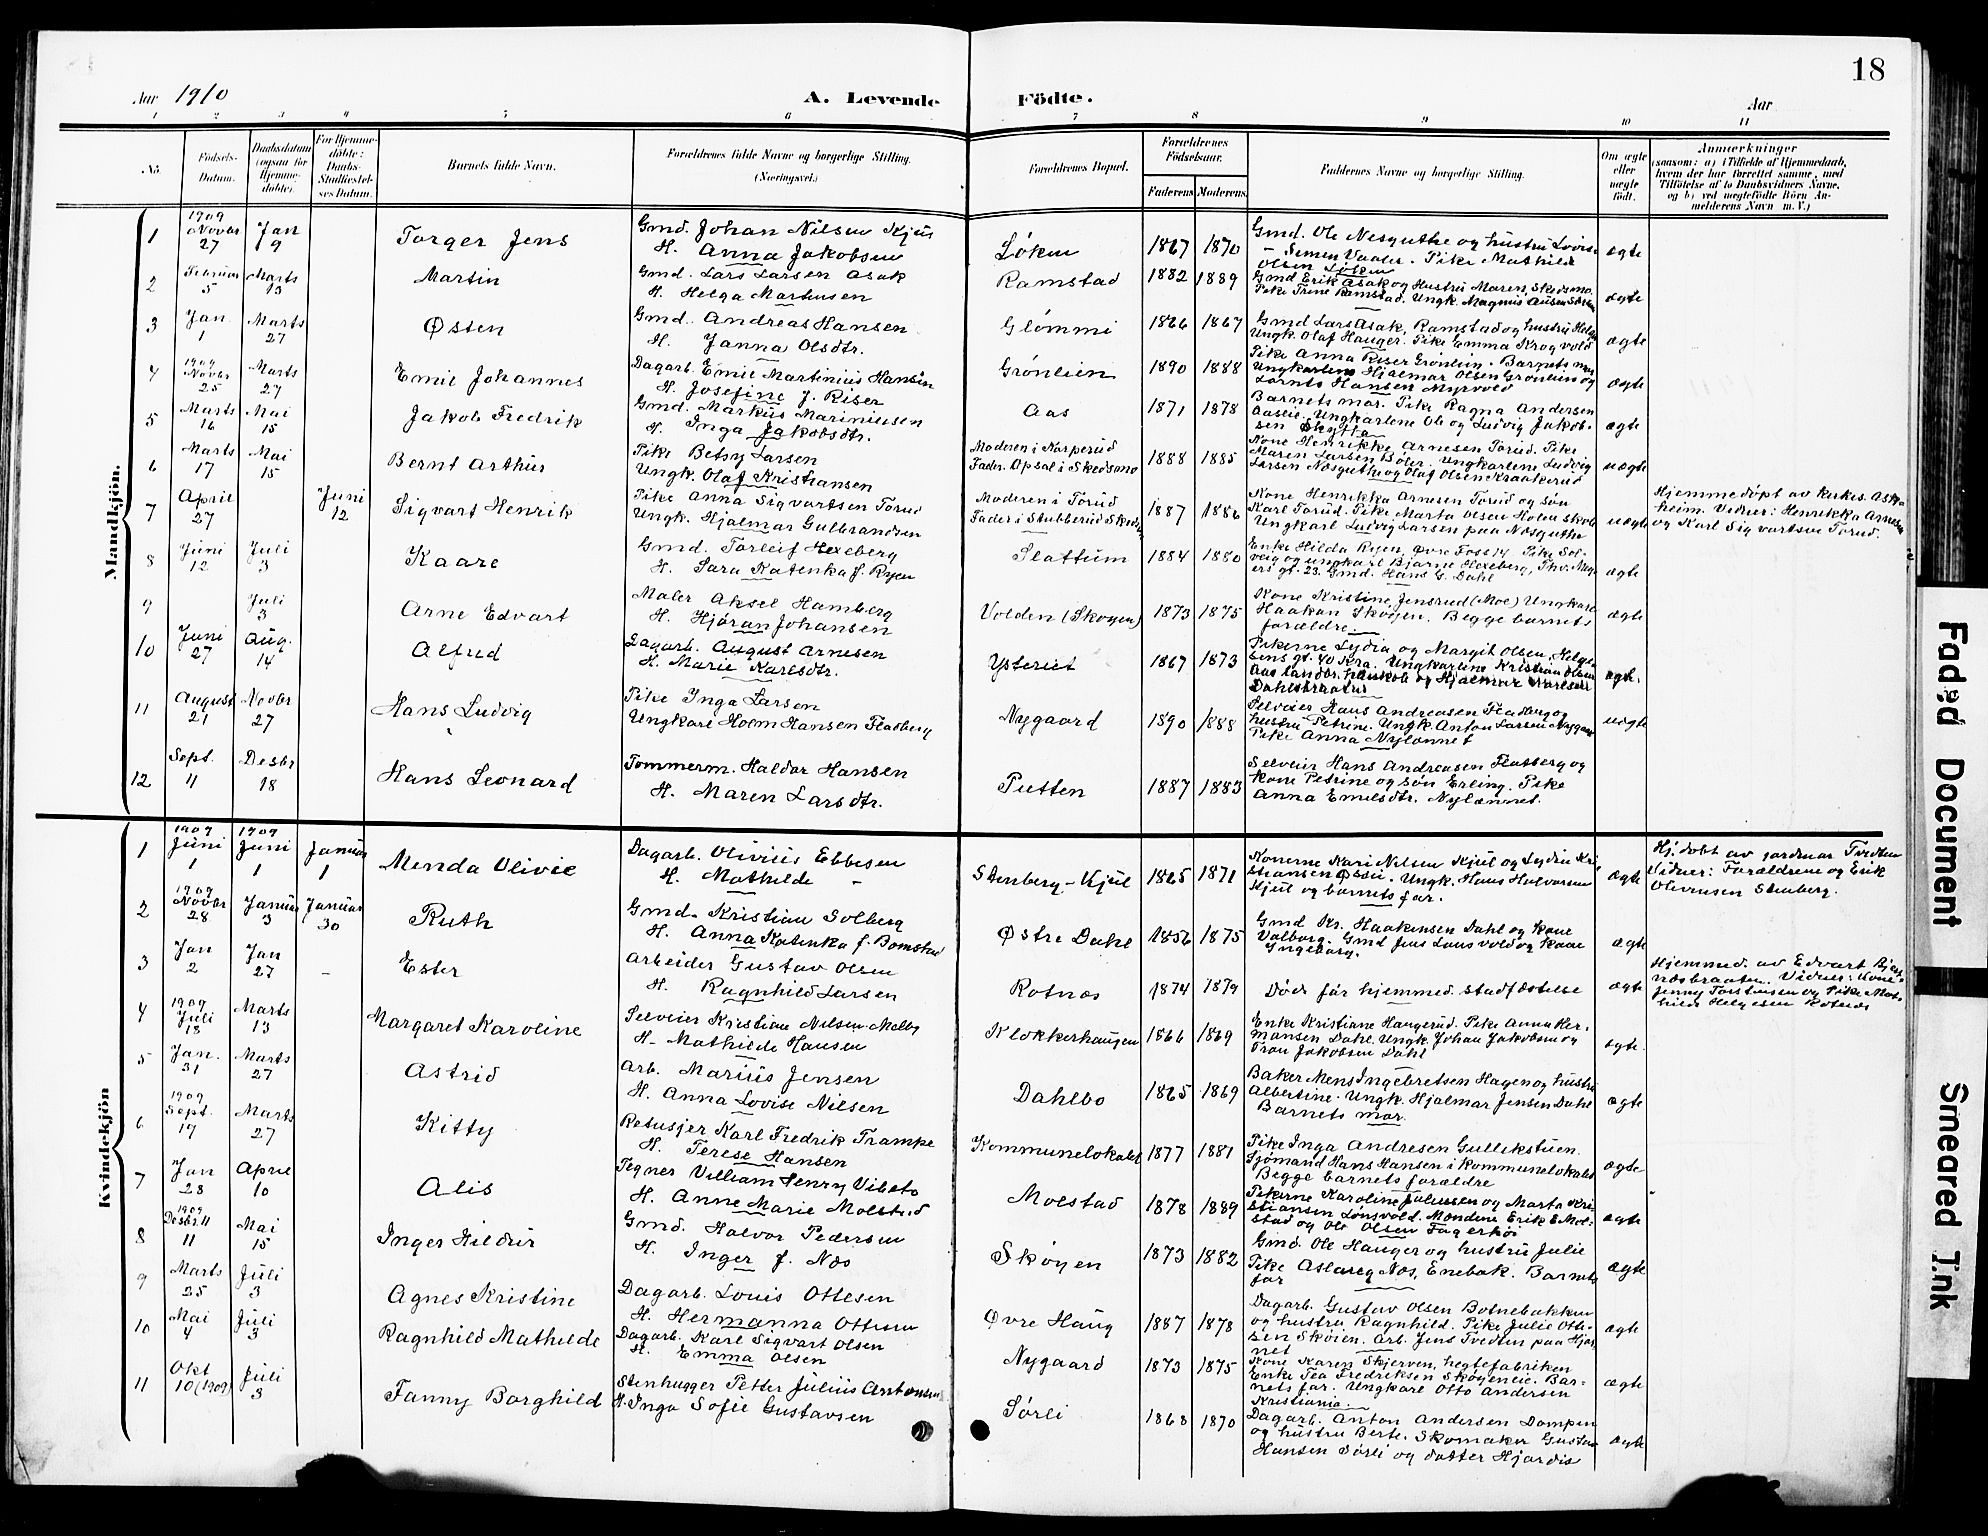 18
Aar 1910
A. Levende
Födte.
Aar
1 2 3 4 5 6 7 8 9 10 11
No.
Födsels-Datum.
Daabsdatum (ogsaa for Hjemme-döbte).
For Hjemme-döbte: Daabs-Stadfæstel-ses Datum.
Barnets fulde Navn.
Forældrenes fulde Navne og borgerlige Stilling. (Næringsvei.)
Forældrenes Bopæl.
Forældrenes Födselsaar.
Faderens. Moderens.
Faddernes Navne og borgerlige Stilling.
Om ægte eller uægte födt.
Anmærkninger
(saasom: a) i Tilfælde af Hjemmedaab, hvem der har forrettet samme, med Tilföielse af to Daabsvidners Navne, og b) ved uegtefödte Börn An-melderens Navn m. V.)
Mandkjön.
1 1909 Novbr 27 Jan 9 Torger Jens Gmd. Johan Nilsen Kjus
H. Anna Jakobsen Løken 1867 1870 Gmd. Ole Nesguthe og hustru Lovise
- Simen Vaaler. Pike Mathilde
Olsen Løken ægte
2 Februar 5 Marts 13 Martin Gmd. Lars Larsen Asak
H. Helga Marthusen Ramstad 1882 1889 Gmd Erik Asak og Hustru Maren, Skedsmo.
Pike Trine Ramstad. Ungk. Magnus ægte
3 Jan. 1 Marts 27 Østen Gmd. Andreas Hansen
H. Janna Olsdtr. Glømmi 1866 1867 Gmd Lars Asak, Ramstad og hustru Helga
Ungk. Olaf Hauger. Pike Emma Krogvold ægte
4 1909 Novbr 25 Marts 27 Emil Johannes Dagarb. Emil Martinius Hansen
H. Josefine f. Riser Grønlien 1890 1888 Pike Anna Riser Grønlien. Barnets mor
Ungkarlene Hjalmar Olsen Grønlien og
Hansen Myrvold ægte
5 Marts 16 Mai 15 Jakob Fredrik Gmd. Markus Mariniusen
H. Inga Jakobsdtr. Aas 1871 1878 Barnets mor. Pike Ragna Andersen
Aaseie. Ungkarlene Ole og Ludvig Jakob-
sen Skytta ægte
6 Marts 17 Mai 15 Bernt Arthur Pike Betsy Larsen
Ungk. Olaf Kristiansen Moderen i Korperud
Fader. Opsal i Skedsmo 1888 1885 Kone Henrikke Arnesen Torud. Pike
Maren Larsen Böler. Ungkarlene Ludvig
Larsen Nesguthe og Olaf Olsen Kraakerud uægte
7 April 27 Juni 12 Sigvart Henrik Pike Anna Sigvartsen Torud
Ungk. Hjalmar Gulbrandsen Moderen i Torud
Fader i Stubberud 1887 1886 Kone Henrikka Arnesen Torud og søn
Karl Torud. Pike Marta Olsen Holm Skol
Ungkarl Ludvig Larsen paa Nesguthe uægte Hjemmedøpt av kirkes. Ask-
heim. Vidner: Henrikka Arnesen
og Karl Sigvartsen Torud.
8 Juni 12 Juli 3 Kaare Gmd. Torleif Hexeberg
H. Sara Katenka f. Ryen Slattum 1884 1880 Enke Hilda Ryen, Øvre Foss 14. Pike Sol-
veig og ungkarl Bjarne Hexeberg, Thv. Mey-
ers gt. 23. Gmd. Hans G. Dahl ægte
9 Juli 3 Arne Edvart Maler Aksel Hamberg
H. Hjøran Johansen Volden (Skogen) 1873 1875 Kone Kristine Jensrud (Moe) Ungkarl
Haakan Skøyen. Begge barnets
forældre. ægte
10 Juni 27 Aug. 14 Alfred Dagarb. August Arnesen
H. Marie Karlsdtr. Ysteriet 1867 1873 Pikerne Lydia og Margit Olsen, Helge-
sens gt. 40 Kra. Ungkarlene Kristian Olsen
Aas landbr. høiskole og Hjalmar Karlsen
Dahlsbraaten ægte.
11 August 21 Novbr 27 Hans Ludvig Pike Inga Larsen
Ungkarl Holm Hansen Fladberg Nygaard 1890 1888 Selveier Hans Andreasen Fladberg og
hustru Petrine. Ungk. Anton Larsen Nygaard
Pike Anna Nylænnet uægte
12 Sept. 11 Desbr 18 Hans Leonard Tømmerm. Haldor Hansen
H. Maren Larsdtr. Putten 1887 1883 Selveier Hans Andreasen Flatberg og
kone Petrine og søn Erling. Pike
Anna Emilsdtr. Nylænnet.
Kvindekjön
1 1909 Juni 1 1909 Juni 1 Januar 1 Menda Olivie Dagarb. Olivius Ebbesen
H. Mathilde - Stenberg-Kjul 1865 1871 Konerne Kari Nilsen Kjul og Lydia Kri-
stiansen Øssie. Ungk. Hans Halvorsen
Kjul og barnets far. ægte Hj. døbt av jordmor Tvedten
Vidner: Forældrene og Erik
Oliviusen Stenberg.
2 1909 Novbr 28 Januar 3 Januar 30 Ruth Gmd. Kristian Solberg
H. Anna Katenka f. Bomstad Østre Dahl 1856 1875 Gmd Kr. Haakensen Dahl og kone
Valborg. Gmd Jens Lønsvold og kone
Ingeborg. ægte
3 Jan 2 Jan 27 - Ester Arbeider Gustav Olsen
H. Ragnhild Larsen Rotnæs 1874 1879 Døde før hjemmed. stadfæstelse ægte Hjemmed. av Edvart Bjert-
næsbraaten. Vidner: Kone
Jenny Torstensen og Pike Mat-
hilde Helgesen Rotnæs
4 1909 Juli 18 Marts 13 Margaret Karoline Selveier Kristian Nilsen Melby
H. Mathilde Hansen Klokkerhaugen 1866 1869 Enke Kristiane Haugerud. Pike Anna Her-
mansen Dahl. Ungk. Johan Jakobsen og
Tron Jakobsen Dahl ægte.
5 Jan. 31 Marts 27 Astrid Arb. Marius Jensen
H. Anna Lovise Nilsen Dahlbo 1865 1869 Baker Mens Ingebretsen Hagen og hustru
Albertine. Ungk. Hjalmar Jensen Dahl
Barnets mor. ægte
6 1909 Sept. 17 Marts 27 Kitty Retusjer Karl Fredrik Trampe
H. Terese Hansen Kommunelokalet 1877 1881 Pike Inga Andresen Gullikstuen.
Sjømand Hans Hansen i kommunelokalet
Begge barnets forældre ægte
7 Jan 28 April 10 Alis Tegner Villiam Henry Vibeto
H. Anne Marie Molstad Molstad 1878 1889 Pikerne Karoline Juliussen og Marta Kri-
stiansen Lønsvold. Mændene Erik E. Mol-
stad og Ole Olsen Fagerhøi ægte
8 1909 Desbr. 11 11 Mai 15 Inger Hildur Gmd. Halvor Pedersen
H. Inger f. Næs Skøyen 1873 1882 Gmd. Ole Hauger og hustru Julie
Pike Aslaug Næs, Enebak. Barnets
far ægte
9 Marts 25 Juli 3 Agnes Kristine Dagarb. Louis Ottesen
H. Hermanna Ottesen Øvre Haug 1887 1878 Dagarb. Gustav Olsen Botnebakken
og hustru Ragnhild. Pike Julie Otte-
sen Skøien. Arb. Jens Tvedten paa Hjor-
net ægte
10 Mai 4 Juli 3 Ragnhild Mathilde Dagarb. Karl Sigvart Olsen
H. Emma Olsen Nygaard 1873 1875 Kone Karen Skjerven, hegtefabriken
Enke Tea Fredriksen Skøyeneie. Bar-
nets far. Ungkarl Otto Andersen
Kristiania. ægte
11 Okt 10 (1909) Juli 3 Fanny Borghild Stenhugger Petter Julius Antonsen
H. Inga Sofie Gustavsen Sørli 1868 1870 Dagarb. Anton Andersen Dompen
og hustru Berte. Skomaker Gustav
Hansen Sørli og datter Hjørdis ægte
Faded Document
Smeared Ink